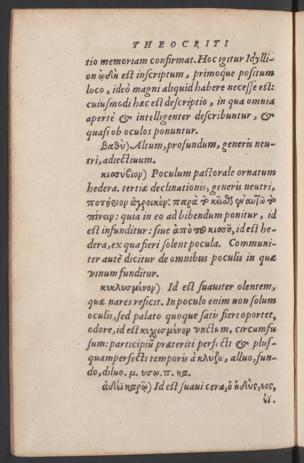 THEOCRITI
tio memoriam confirmat. Hoc igitur Idylli-
on ᾠδὴν est inscriptum, primoque positum
loco, ideò magni aliquid habere necesse est:
cuiusmodi hæc est descriptio, in qua omnia
apertè & intelligenter describuntur, &
quasi ob oculos ponuntur.
βαθὺ) Altum, profundum, generis neu-
tri, adiectiuum.
κισσύβιον) Poculum pastorale ornatum
hedera. tertiæ declinationis, generis neutri,
ποτήριον ἀγροικόν: παρὰ τὸ
πίνειν: quia in eo ad bibendum ponitur, id
est infunditur: siue ἀπὸ τοῦ κισσοῦ, id est he-
dera, ex qua fieri solent pocula. Communi-
ter autē dicitur de omnibus poculis in quæ
vinum funditur.
κεκλυσμένον) Id est suauiter olentem,
quæ nares reficit. In poculo enim non solum
oculis, sed palato quoque satis fieri oportet,
odore, id est κεχρισμένον vnctum, circumfu
sum: participiū præteriti perfecti & plus-
quamperfecti temporis à κλύζω, alluo, fun-
do, diluo. μ. υσω. π. κα.
ἁδέϊ καρῷ) Id est suaui cera, ὁ ἡδὺς, εος,
έϊ.